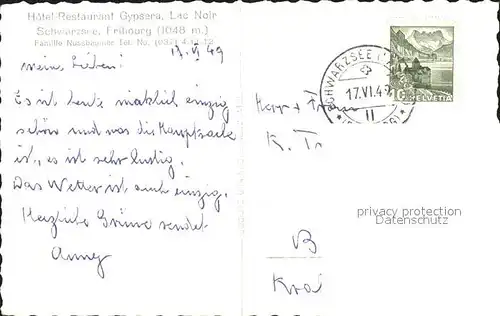 Hôtel-Restaurant Gypsera, Lac Noir
Schwarzsee, Fribourg (1048 m.)
Familie Nussbaumer Tel. No. (037)
17. VI 49
Meine Lieben!
Es ist heute wirklich einzig
schön und was die Hauptsache
ist, es ist sehr lustig.
Das Wetter ist auch einzig.
Herzliche Grüsse sendet
Anny
SCHWARZSEE
17.VI.49
II
HELVETIA
Herr + Frau
K. T
B
privacy protection
Datenschutz